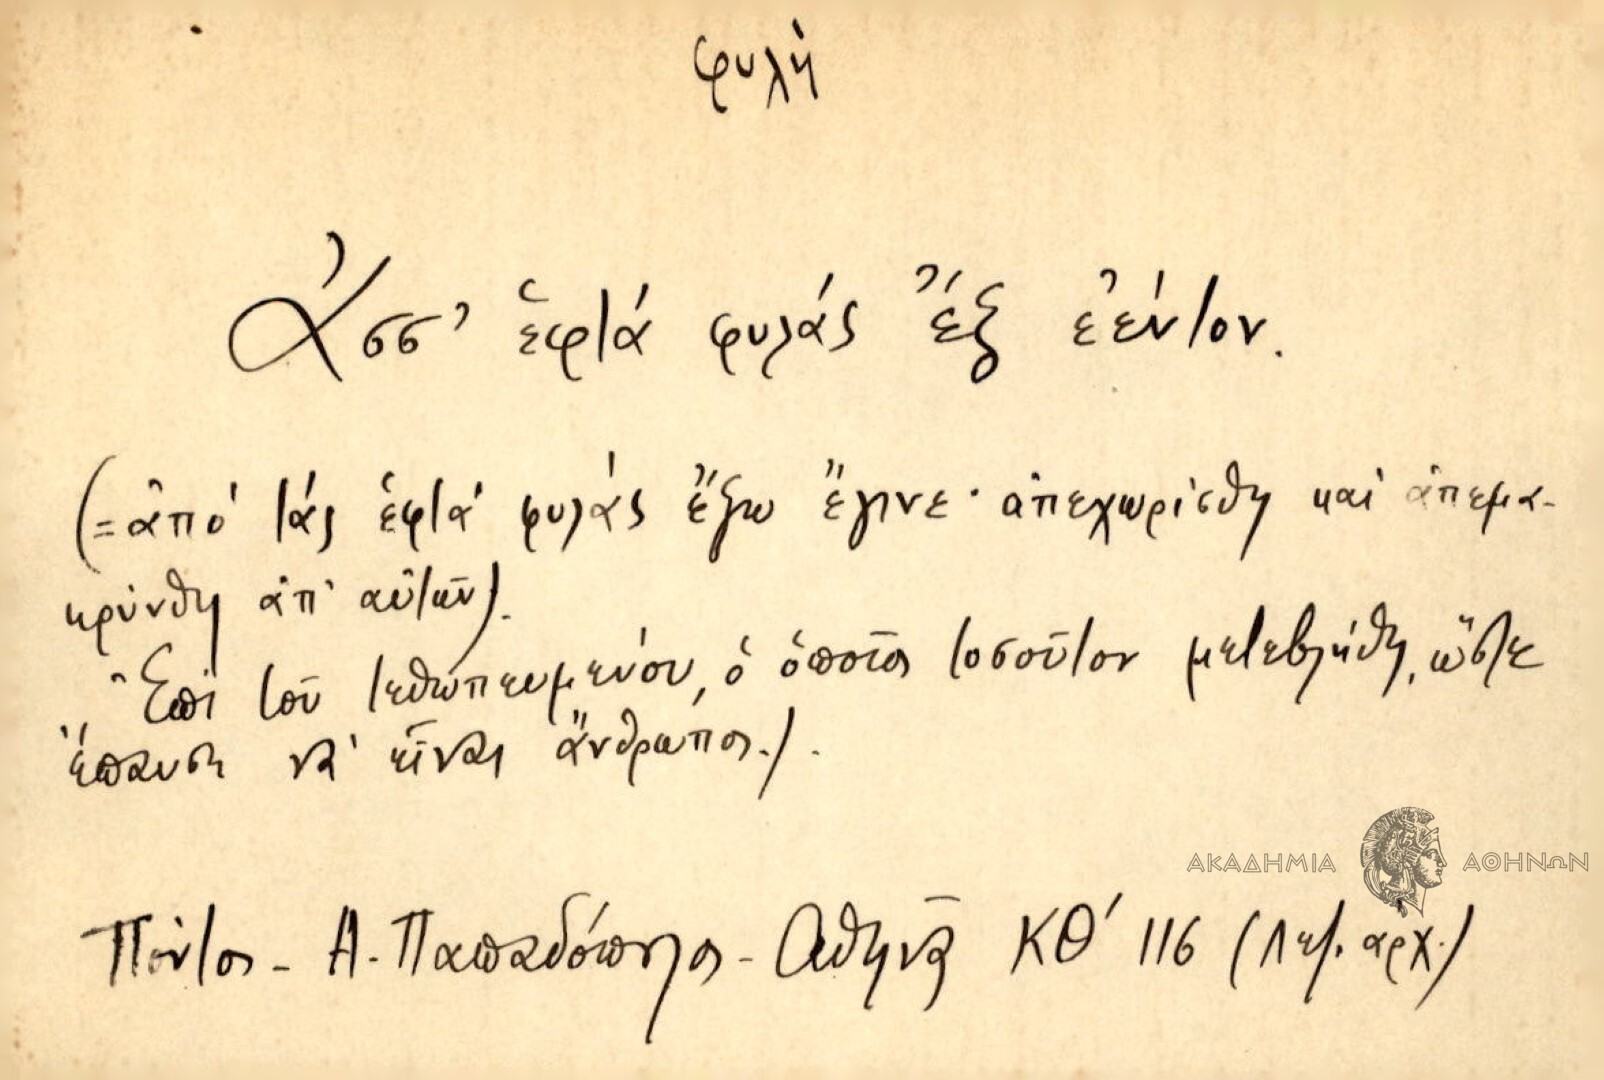 φυλή
Ἀσσ' ἑφτά φυλάς ἔξ ἐέντον.
(=ἀπό τάς ἑφτά φυλάς ἔξω ἔγινε· ἀπεχωρίσθη καί ἀπεμα-
κρύνθη ἀπ' αὐτῶν).
Ἐπί τοῦ τεθωπευμένου, ὁ ὁποῖος τοσοῦτον μετεβλήθη, ὥστε
ἔπαυσε νά εἶναι ἄνθρωπος.).
Πόντος - Α. Παπαδόπουλος - Ἀθηνᾶ ΚΘ' 116 (Λεξ. αρχ.)
ΑΚΑΔΗΜΙΑ ΑΘΗΝΩΝ